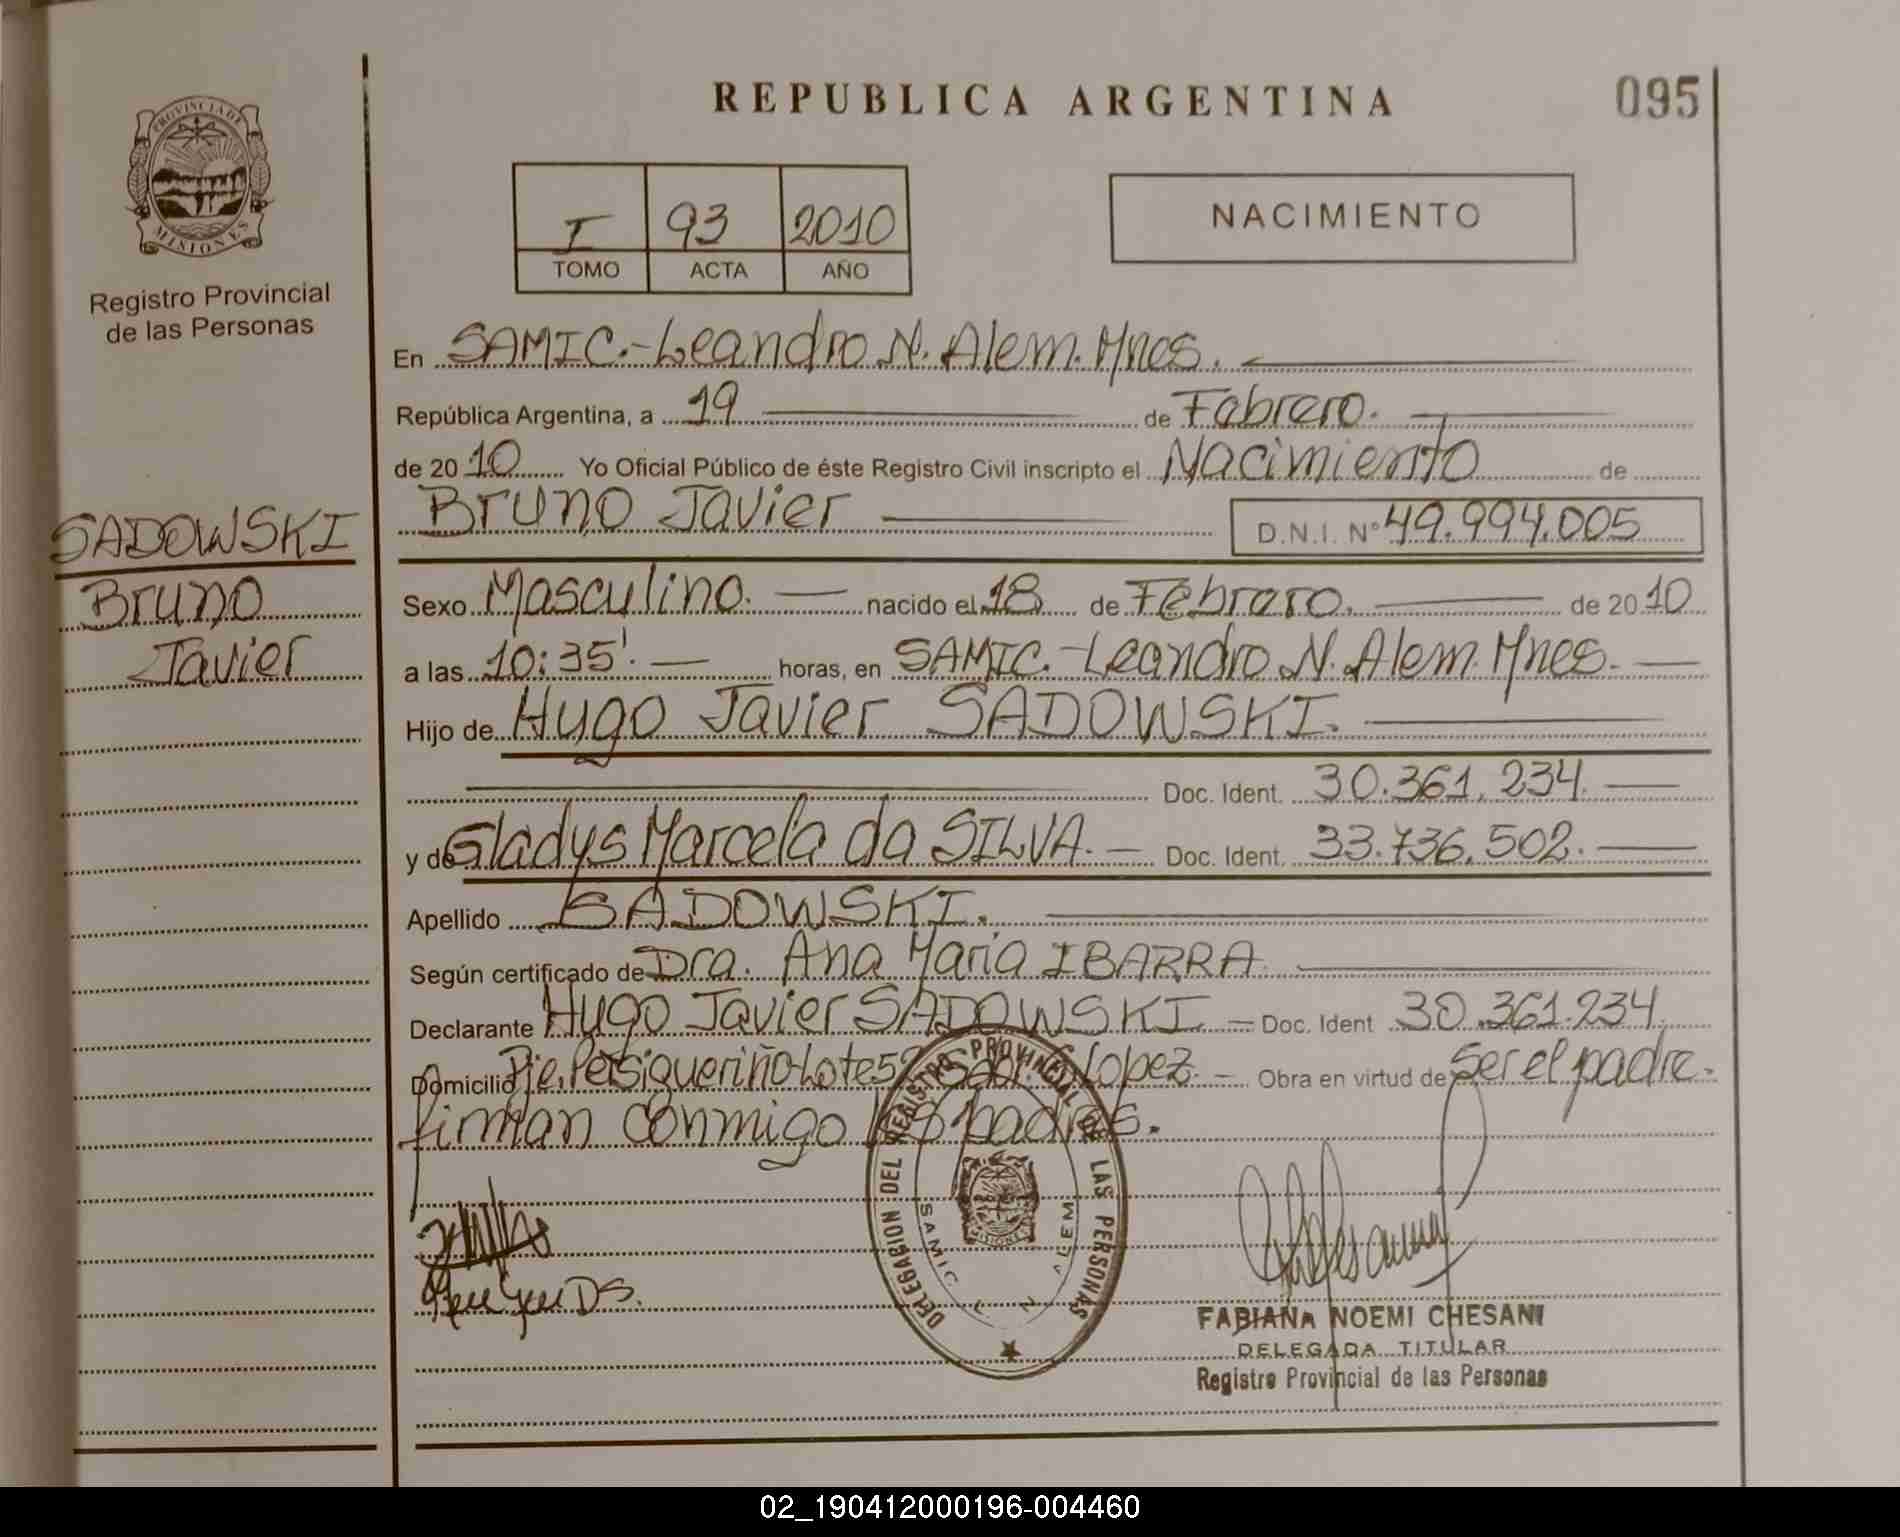 PROVINCIA DE
MISIONES
Registro Provincial
de las Personas
SADOWSKI
Bruno
Javier
REPUBLICA ARGENTINA
095
I 93 2010
TOMO ACTA AÑO
NACIMIENTO
En SAMIC.-Leandro N. Alem. Mnes.
República Argentina, a 19 de Febrero.
de 2010 Yo Oficial Público de éste Registro Civil inscripto el Nacimiento de
Bruno Javier D.N.I. Nº 49.994.005
Sexo Masculino. nacido el 18 de Febrero. de 2010
a las 10:35'. horas, en SAMIC.-Leandro N. Alem. Mnes.
Hijo de Hugo Javier SADOWSKI.
Doc. Ident. 30.361.234.
y de Gladys Marcela da SILVA. Doc. Ident. 33.736.502.
Apellido SADOWSKI.
Según certificado de Dra. Ana Maria IBARRA
Declarante Hugo Javier SADOWSKI Doc. Ident 30.361.234
Domicilio Pje. Persigueriño-Lote 52 Lopez. Obra en virtud de Ser el padre.
firman conmigo los padres.
DELEGACION DEL REGISTRO PROVINCIAL DE LAS PERSONAS
SAMIC L N ALEM
MISIONES
FABIANA NOEMI CHESANI
DELEGADA TITULAR
Registro Provincial de las Personas
02_190412000196-004460